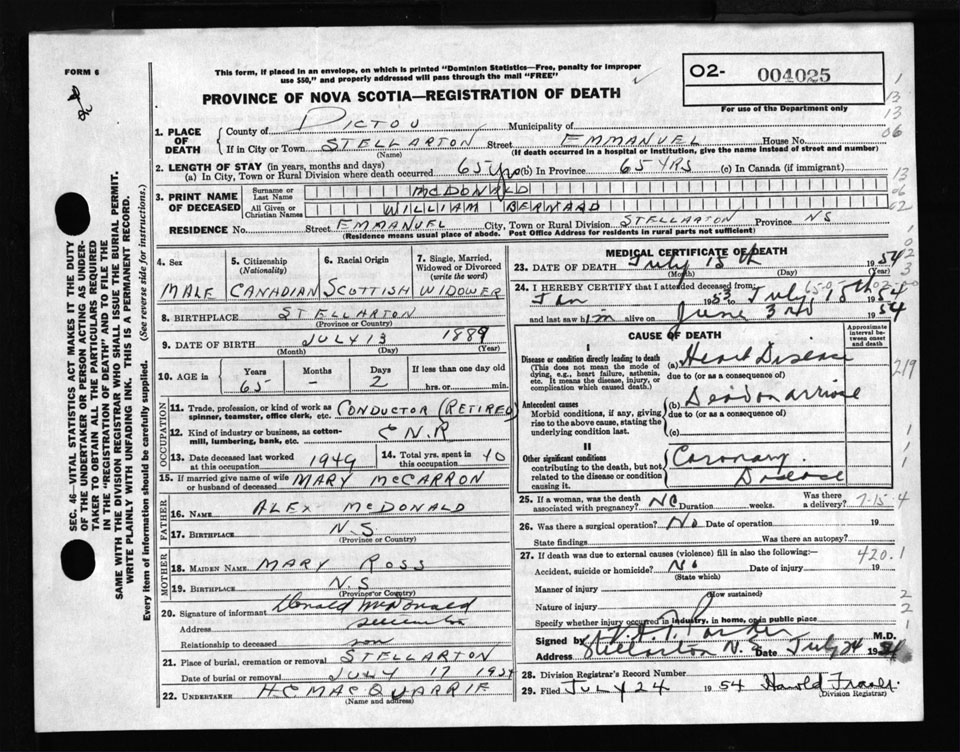 FORM 6
This form, if placed in an envelope, on which is printed "Dominion Statistics—Free, penalty for improper
use $50," and properly addressed will pass through the mail "FREE"
PROVINCE OF NOVA SCOTIA—REGISTRATION OF DEATH
O2- 004025
For use of the Department only
SEC. 46—VITAL STATISTICS ACT MAKES IT THE DUTY
OF THE UNDERTAKER OR PERSON ACTING AS UNDER-
TAKER TO OBTAIN ALL THE PARTICULARS REQUIRED
IN THE "REGISTRATION OF DEATH" AND TO FILE THE
SAME WITH THE DIVISION REGISTRAR WHO SHALL ISSUE THE BURIAL PERMIT.
WRITE PLAINLY WITH UNFADING INK. THIS IS A PERMANENT RECORD.
Every item of information should be carefully supplied. (See reverse side for instructions.)
1. PLACE OF DEATH
County of PICTOU Municipality of
If in City or Town STELLARTON Street EMMANUEL House No.
(Name) (If death occurred in a hospital or institution, give the name instead of street and number)
2. LENGTH OF STAY (in years, months and days)
(a) In City, Town or Rural Division where death occurred 65 yrs (b) In Province 65 YRS (c) In Canada (if immigrant)
3. PRINT NAME OF DECEASED
Surname or Last Name MCDONALD
All Given or Christian Names WILLIAM BERNARD
RESIDENCE No. Street EMMANUEL City, Town or Rural Division STELLARTON Province NS
(Residence means usual place of abode. Post Office Address for residents in rural parts not sufficient)
4. Sex MALE
5. Citizenship (Nationality) CANADIAN
6. Racial Origin SCOTTISH
7. Single, Married, Widowed or Divorced (write the word) WIDOWER
8. BIRTHPLACE STELLARTON
(Province or Country)
9. DATE OF BIRTH JULY 13 1889
(Month) (Day) (Year)
10. AGE in Years 65 Months - Days 2 If less than one day old
hrs. or min.
OCCUPATION
11. Trade, profession, or kind of work as spinner, teamster, office clerk, etc. CONDUCTOR (RETIRED)
12. Kind of industry or business, as cotton-mill, lumbering, bank, etc. C N.R
13. Date deceased last worked at this occupation 1949
14. Total yrs. spent in this occupation 40
15. If married give name of wife or husband of deceased MARY McCARRON
FATHER
16. NAME ALEX McDONALD
17. BIRTHPLACE N.S
(Province or Country)
MOTHER
18. MAIDEN NAME MARY ROSS
19. BIRTHPLACE N.S
(Province or Country)
20. Signature of informant Donald McDonald
Address
Relationship to deceased son
21. Place of burial, cremation or removal STELLARTON
Date of burial or removal JULY 17 1954
22. UNDERTAKER H.C. MACQUARRIE
(Name and address)
MEDICAL CERTIFICATE OF DEATH
23. DATE OF DEATH July 15th 1954
(Month) (Day) (Year)
24. I HEREBY CERTIFY that I attended deceased from:
Jan 1953 to July 15th 1954
and last saw him alive on June 3rd 1954
CAUSE OF DEATH
Approximate interval between onset and death
I
Disease or condition directly leading to death
(This does not mean the mode of dying, e.g., heart failure, asthenia, etc. It means the disease, injury, or complication which caused death.)
(a) Heart Disease
due to (or as a consequence of)
Antecedent causes
Morbid conditions, if any, giving rise to the above cause, stating the underlying condition last.
(b) Dead on arrival
due to (or as a consequence of)
(c)
II
Other significant conditions
contributing to the death, but not related to the disease or condition causing it.
Coronary
Disease
25. If a woman, was the death associated with pregnancy? NO Duration weeks. Was there a delivery? 7-15-4
26. Was there a surgical operation? No Date of operation 19
State findings Was there an autopsy?
27. If death was due to external causes (violence) fill in also the following: 420.1
Accident, suicide or homicide? No Date of injury 19
(State which)
Manner of injury
(How sustained)
Nature of injury
Specify whether injury occurred in industry, in home, or in public place
Signed by M.D.
Address Stellarton N.S Date July 24 1954
28. Division Registrar's Record Number
29. Filed JULY 24 1954 Harold Fraser
(Division Registrar)